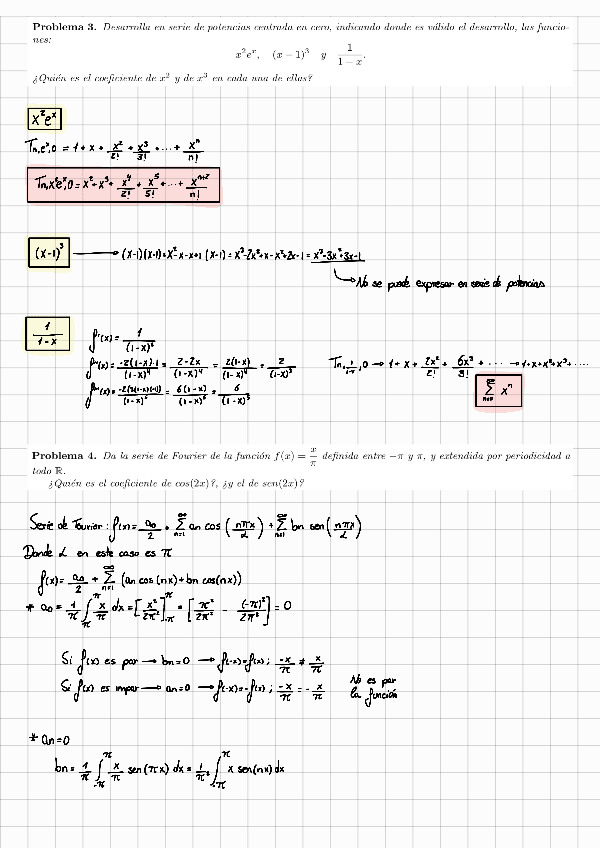 Problema 3. Desarrolla en serie de potencias centrada en cero, indicando donde es válido el desarrollo, las funciones:
x²eˣ, (x − 1)³ y 1/(1 − x).
¿Quién es el coeficiente de x² y de x³ en cada una de ellas?
x²eˣ
Tn,eˣ,0 = 1 + x + x²/2! + x³/3! + ... + xⁿ/n!
Tn,x²eˣ,0 = x² + x³ + x⁴/2! + x⁵/5! + ... + xⁿ⁺²/n!
(x-1)³ → (x-1)(x-1) = x²-x-x+1 (x-1) = x³-2x²+x-x²+2x-1 = x³-3x²+3x-1
→ No se puede expresar en serie de potencias
1/(1-x)
f'(x) = 1/(1-x)²
f''(x) = -2(1-x)·1/(1-x)⁴ = 2-2x/(1-x)⁴ = 2(1-x)/(1-x)⁴ = 2/(1-x)³
Tn, 1/(1-x), 0 → 1 + x + 2x²/2! + 6x³/3! + ... → 1+x+x²+x³+...
∑ xⁿ
Problema 4. Da la serie de Fourier de la función f(x) = x/π definida entre −π y π, y extendida por periodicidad a todo ℝ.
¿Quién es el coeficiente de cos(2x)?, ¿y el de sen(2x)?
Serie de Fourier: f(x) = a₀/2 + ∑ₙ₌₁^∞ an cos (nπx/L) + ∑ₙ₌₁^∞ bn sen (nπx/L)
Donde L en este caso es π
f(x) = a₀/2 + ∑ₙ₌₁^∞ (an cos (nx) + bn cos(nx))
* a₀ = 1/π ∫ x/π dx = [x²/2π²] = [π²/2π² - (-π)²/2π²] = 0
Si f(x) es par → bn = 0 → f(-x) = f(x); -x/π ≠ x/π
Si f(x) es impar → an = 0 → f(-x) = -f(x); -x/π = - x/π
No es par
la función
* an = 0
bn = 1/π ∫ x/π sen (πx) dx = 1/π² ∫ x sen(nx) dx